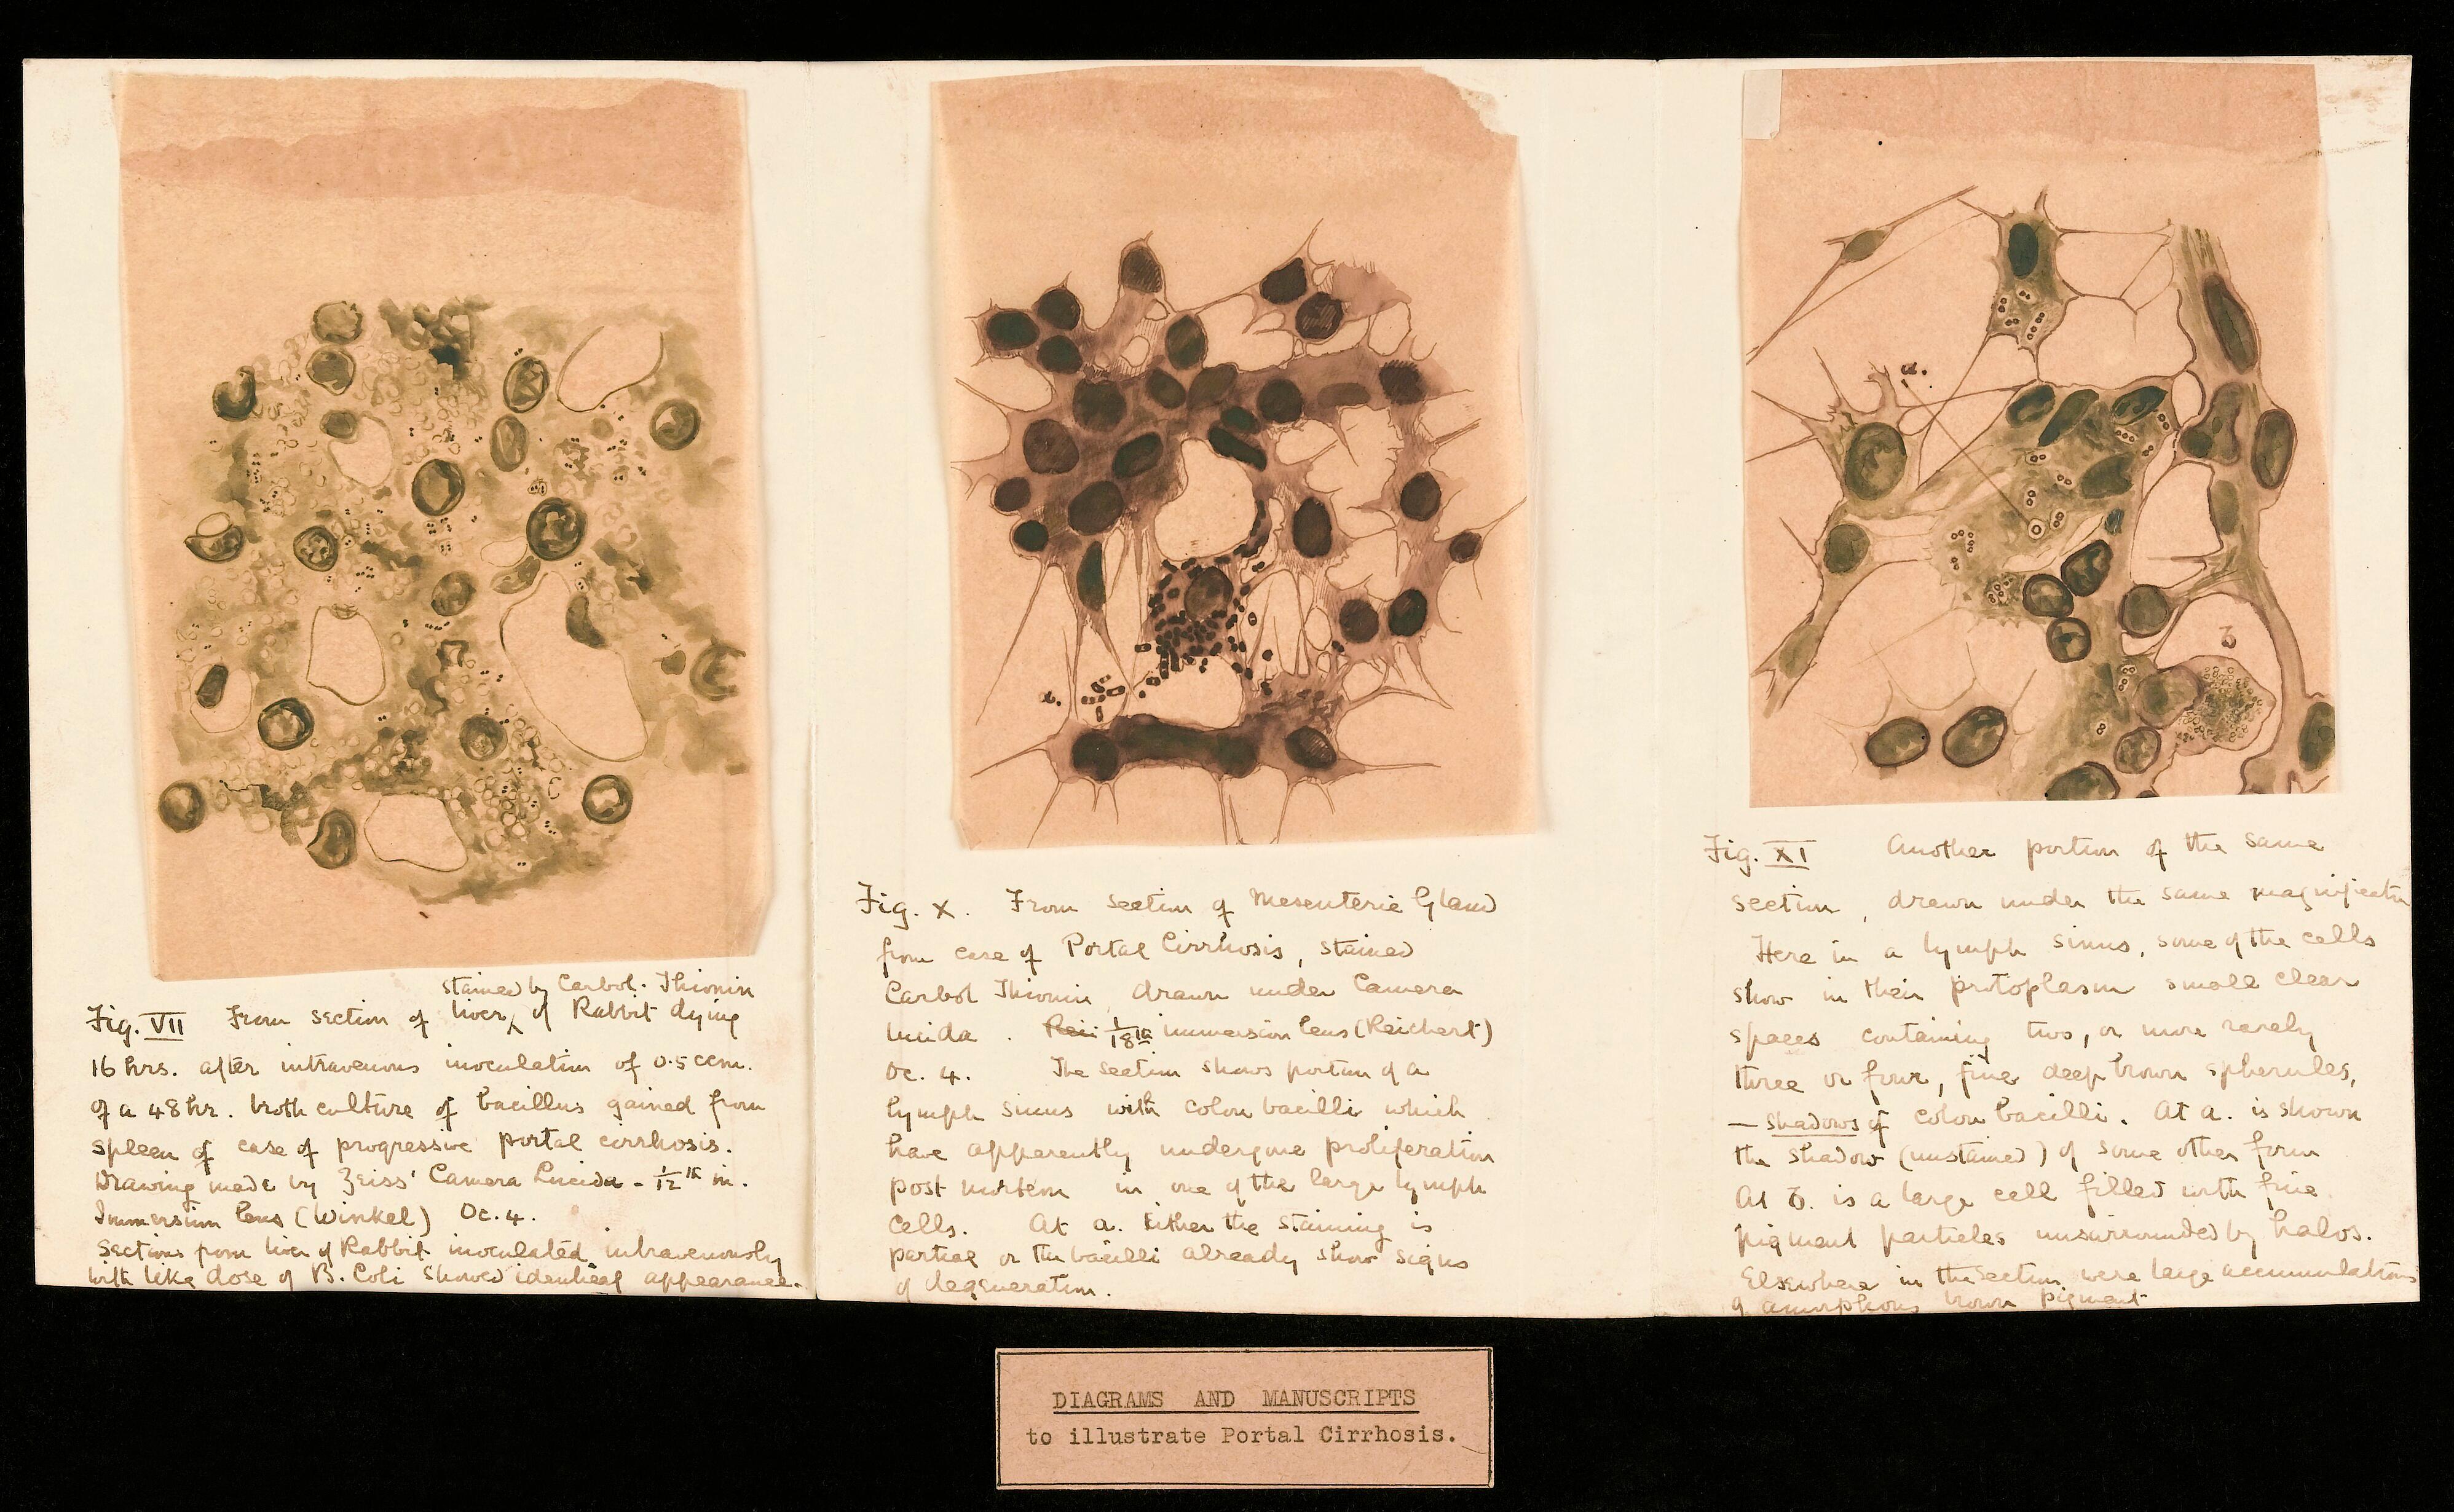 stained by Carbol. Thionin
Fig. VII From section of liver ^ of Rabbit dying
16 hrs. after intravenous inoculation of 0.5 ccm.
of a 48 hr. broth culture of bacillus gained from
spleen of case of progressive portal cirrhosis.
Drawing made by Zeiss' Camera Lucida - 1/12th in.
Immersion lens (Winkel) Oc. 4.
Sections from liver of Rabbit inoculated intravenously
with like dose of B. Coli showed identical appearance.
a.
Fig. X. From section of Mesenteric Gland
from case of Portal Cirrhosis, stained
Carbol Thionin, drawn under Camera
lucida. Rei: 1/18th immersion lens (Reichert)
Oc. 4. The section shows portion of a
lymph sinus with colon bacilli which
have apparently undergone proliferation
post mortem in one of the large lymph
cells. At a. Either the staining is
partial or the bacilli already show signs
of degeneration.
a.
b
Fig. XI Another portion of the same
section, drawn under the same magnification
Here in a lymph sinus, some of the cells
show in their protoplasm small clear
spaces containing two, or more rarely
three or four, fine deep brown spherules,
— shadows of colon bacilli. At a. is shown
the shadow (unstained) of some other form
At b. is a large cell filled with fine
pigment particles unsurrounded by halos.
Elsewhere in the section were large accumulations
of amorphous brown pigment
DIAGRAMS AND MANUSCRIPTS
to illustrate Portal Cirrhosis.